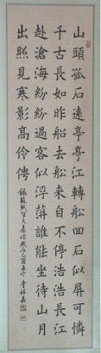 山頭孤石遠亭亭江轉船回石似屏可憐
千古長如昨船去船來自不停浩浩長江
赴滄海紛紛過客似浮萍誰能坐待山月
出照見寒影高伶俜